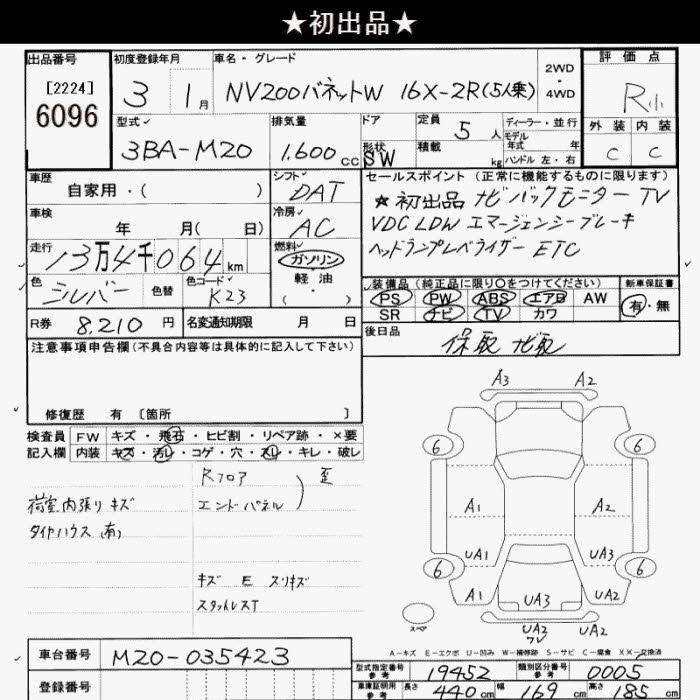 ★初出品★
出品番号 初度登録年月 車名・グレード 2WD・4WD 評価点
[2224] 6096 3 1月 NV200バネットW 16X-2R(5人乗) R小
型式 排気量 ドア形状 定員 積載 ディーラー・並行 モデル年式 年 ハンドル 左・右 外装 内装
3BA-M20 1,600cc SW 5人 kg C C
車歴 自家用・( ) シフト DAT セールスポイント (正常に機能するものに限ります)
車検 年 月( 日) 冷房 AC ★初出品 ナビ バックモニター TV
走行 13万4千064km 燃料 ガソリン 軽油 ( ) VDC LDW エマージェンシーブレーキ
色 シルバー 色替 色コード K23 ヘッドランプレベライザー ETC
装備品 (純正品に限り○をつけてください) 新車保証書
PS PW ABS エアB AW 有・無
SR ナビ TV カワ
R券 8,210円 名変通知期限 月 日 後日品 保取 ナビ取
注意事項申告欄(不具合内容等は具体的に記入して下さい)
修復歴 有 [箇所 ]
検査員記入欄 FW キズ・飛石・ヒビ割・リペア跡・×要
内装 キズ・汚レ・コゲ・穴・スレ・キレ・破レ
Rフロア
エンドパネル ) 歪
荷室内張り キズ
タイヤハウス(有)
キズ E スリキズ
スタットレスT
A3 A2
6 6
A1 A2
UA1 UA3
6 6
A1 UA3 UA2
スペア UA2 UA2
フレ
A-キズ E-エクボ U-凹み W-補修跡 S-サビ C-腐食 XX-交換済
車台番号 M20-035423
登録番号
型式指定番号 参考 19452 類別区分番号 参考 0005
車庫証明用 参考 長さ 440cm 幅 169cm 高さ 185cm